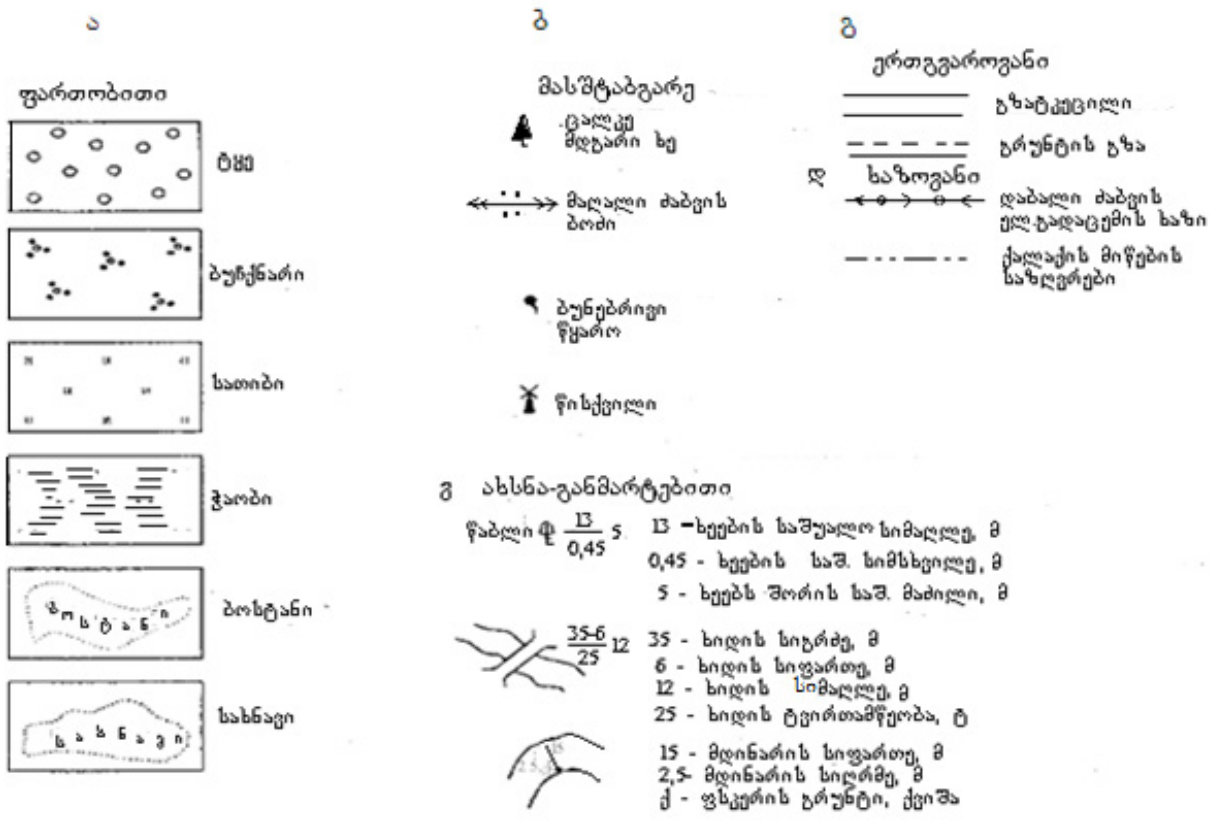 ა
ფართობითი
ტყე
ბუჩქნარი
სათიბი
ჭაობი
ბოსტანი
ბოსტანი
სახნავი
სახნავი
ბ
მასშტაბგარე
ცალკე
მდგარი ხე
მაღალი ძაბვის
ბოძი
ბუნებრივი
წყარო
წისქვილი
გ
ერთგვაროვანი
გზატკეცილი
გრუნტის გზა
დ ხაზოვანი
დაბალი ძაბვის
ელ.გადაცემის ხაზი
ქალაქის მიწების
საზღვრები
გ ახსნა-განმარტებითი
წაბლი 13 5
0,45
13 -ხეების საშუალო სიმაღლე, მ
0,45 - ხეების საშ. სიმსხვილე, მ
5 - ხეებს შორის საშ. მაძილი, მ
35-6 12
25
35 - ხიდის სიგრძე, მ
6 - ხიდის სიფართე, მ
12 - ხიდის სიმაღლე, მ
25 - ხიდის ტვირთამწეობა, ტ
15
2,5
15 - მდინარის სიფართე, მ
2,5- მდინარის სიღრმე, მ
ქ - ფსკერის გრუნტი, ქვიშა